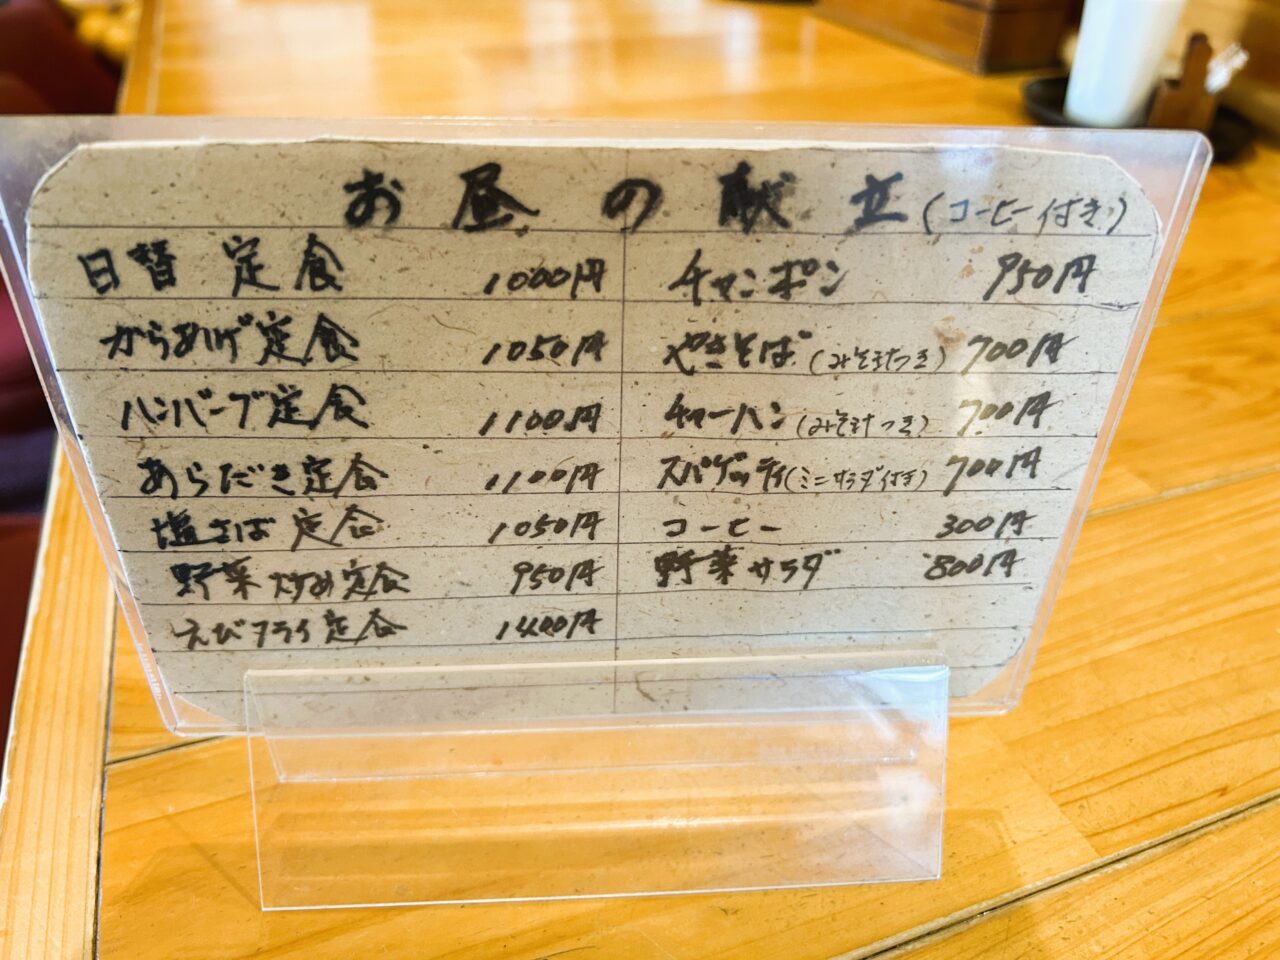 お昼の献立(コーヒー付き)
日替定食 1000円
からあげ定食 1050円
ハンバーグ定食 1100円
あらだき定食 1100円
塩さば定食 1050円
野菜炒め定食 950円
えびフライ定食 1400円
チャンポン 950円
やきそば(みそ汁つき) 700円
チャーハン(みそ汁つき) 700円
スパゲッティ(ミニサラダ付き) 700円
コーヒー 300円
野菜サラダ 800円